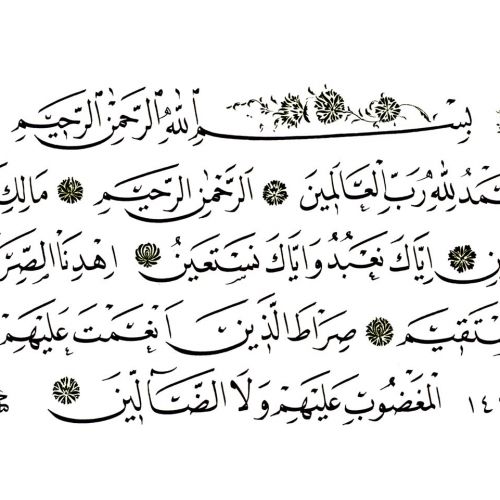 بِسْمِ اللّٰهِ الرَّحْمٰنِ الرَّحِيمِ
ـمْدُ لِلّٰهِ رَبِّ الْعَالَمِينَ الرَّحْمٰنِ الرَّحِيمِ مَالِكِ
اِيَّاكَ نَعْبُدُ وَاِيَّاكَ نَسْتَعِينُ اِهْدِنَا الصِّرَا
ـسْتَقِيمَ صِرَاطَ الَّذِينَ اَنْعَمْتَ عَلَيْهِمْ
الْمَغْضُوبِ عَلَيْهِمْ وَلَا الضَّٓالِّينَ